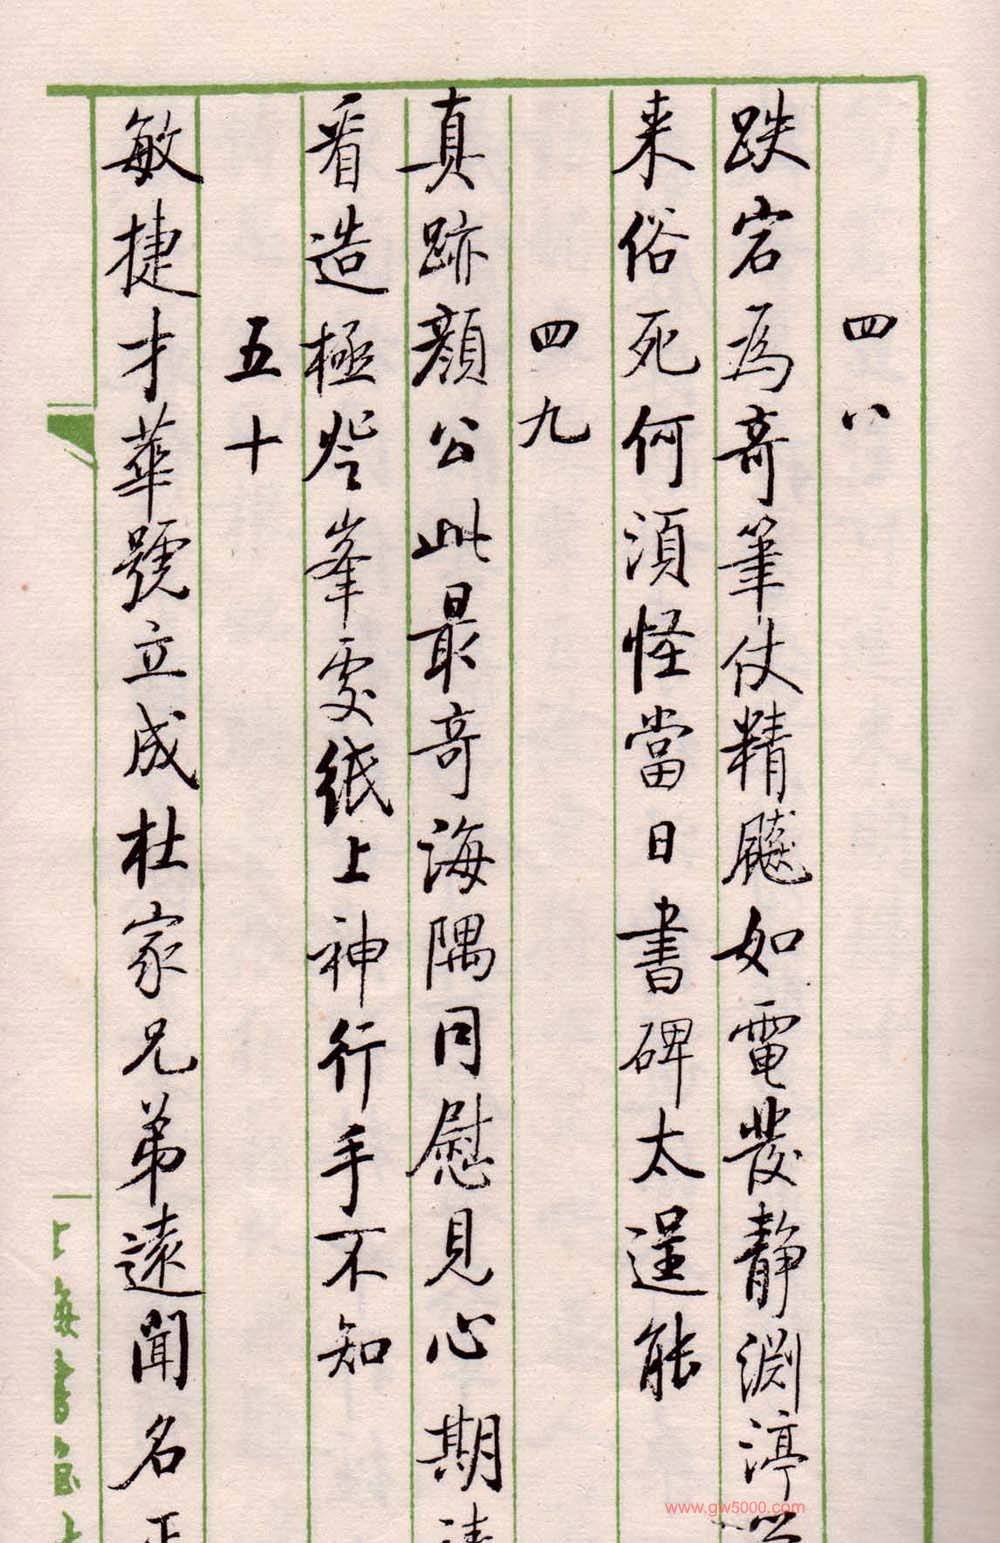 四八
跌宕為奇筆仗精飈如電發靜淵渟
来俗死何須怪當日書碑太逞能
四九
真跡顏公此最奇海隅同慰見心期
看造極登峯處紙上神行手不知
五十
敏捷才華號立成杜家兄弟遠聞名
上海書
www.gw5000.com